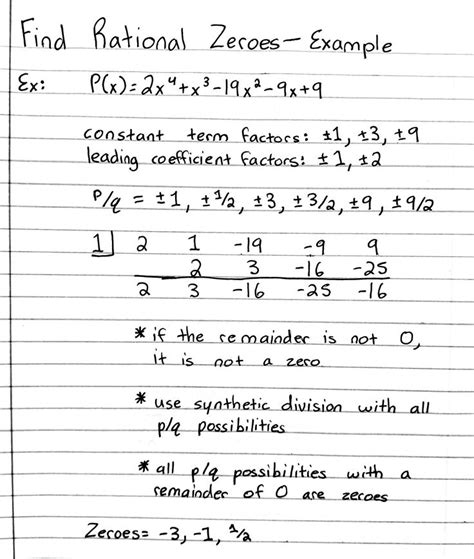 Find Rational Zeroes – Example
Ex: P(x) = 2x⁴+x³-19x²-9x+9
constant term factors: ±1, ±3, ±9
leading coefficient factors: ±1, ±2
P/q = ±1, ±1/2, ±3, ±3/2, ±9, ±9/2
1| 2 1 -19 -9 9
2 3 -16 -25
2 3 -16 -25 -16
* if the remainder is not 0,
it is not a zero
* use synthetic division with all
p/q possibilities
* all p/q possibilities with a
remainder of 0 are zeroes
Zeroes= -3, -1, 1/2